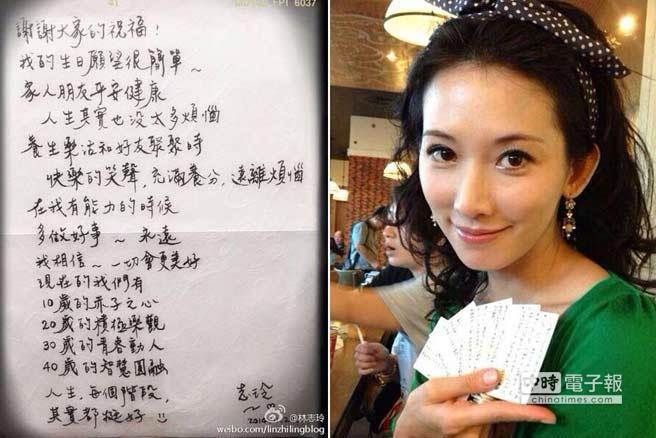 6037
謝謝大家的祝福！
我的生日願望很簡單～
家人朋友平安健康
人生其實也没太多煩惱
養生樂活和好友聚聚時
快樂的笑聲，充滿養分，遠離煩惱
在我有能力的時候
多做好事～永遠
我相信～一切會更美好
現在的我們有
10歲的赤子之心
20歲的積極樂觀
30歲的青春動人
40歲的智慧圓融
人生，每個階段，
其實都挺好
志玲
@林志玲
weibo.com/linzhilingblog
中時電子報
chinatimes.com